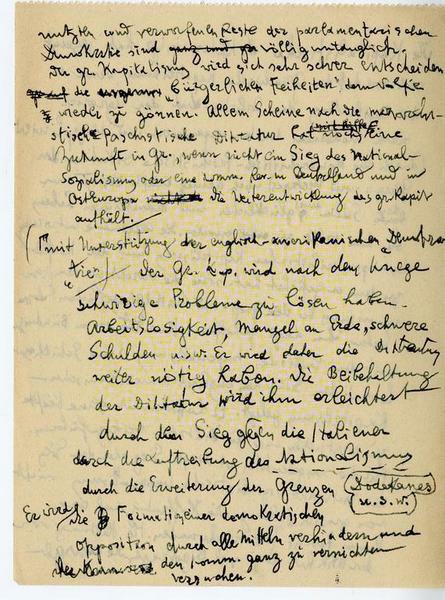 nutzten und verworfenen Reste der parlamentarischen
Demokratie sind völlig untauglich.
Der gr. Kapitalismus wird sich sehr schwer entscheiden
die bürgerlichen Freiheiten dem Volke
wieder zu gönnen. Allem Scheine nach die monarchi-
stisch-faschistische Diktatur hat noch eine
Zukunft in Gr., wenn nicht ein Sieg des National-
Sozialismus oder eine komm. Rev. in Deutschland und in
Osteuropa die Weiterentwicklung des gr. Kapit
aufhält.
(mit Unterstützung der englisch-amerikanischen "Demokra-
tie") Der Gr. Kap. wird nach dem Kriege
schwierige Probleme zu lösen haben
Arbeitslosigkeit, Mangel an Erde, schwere
Schulden u.s.w. Er wird daher die Diktatur
weiter nötig haben. Die Beibehaltung
der Diktatur wird ihm erleichtert
durch den Sieg gegen die Italiener
durch die Auftreibung des Nationalismus
durch die Erweiterung der Grenzen (Dodekanes
u.s.w.)
Er wird die Formation einer demokratischen
Opposition durch alle Mitteln verhindern und
den Komm. ganz zu vernichten
versuchen.